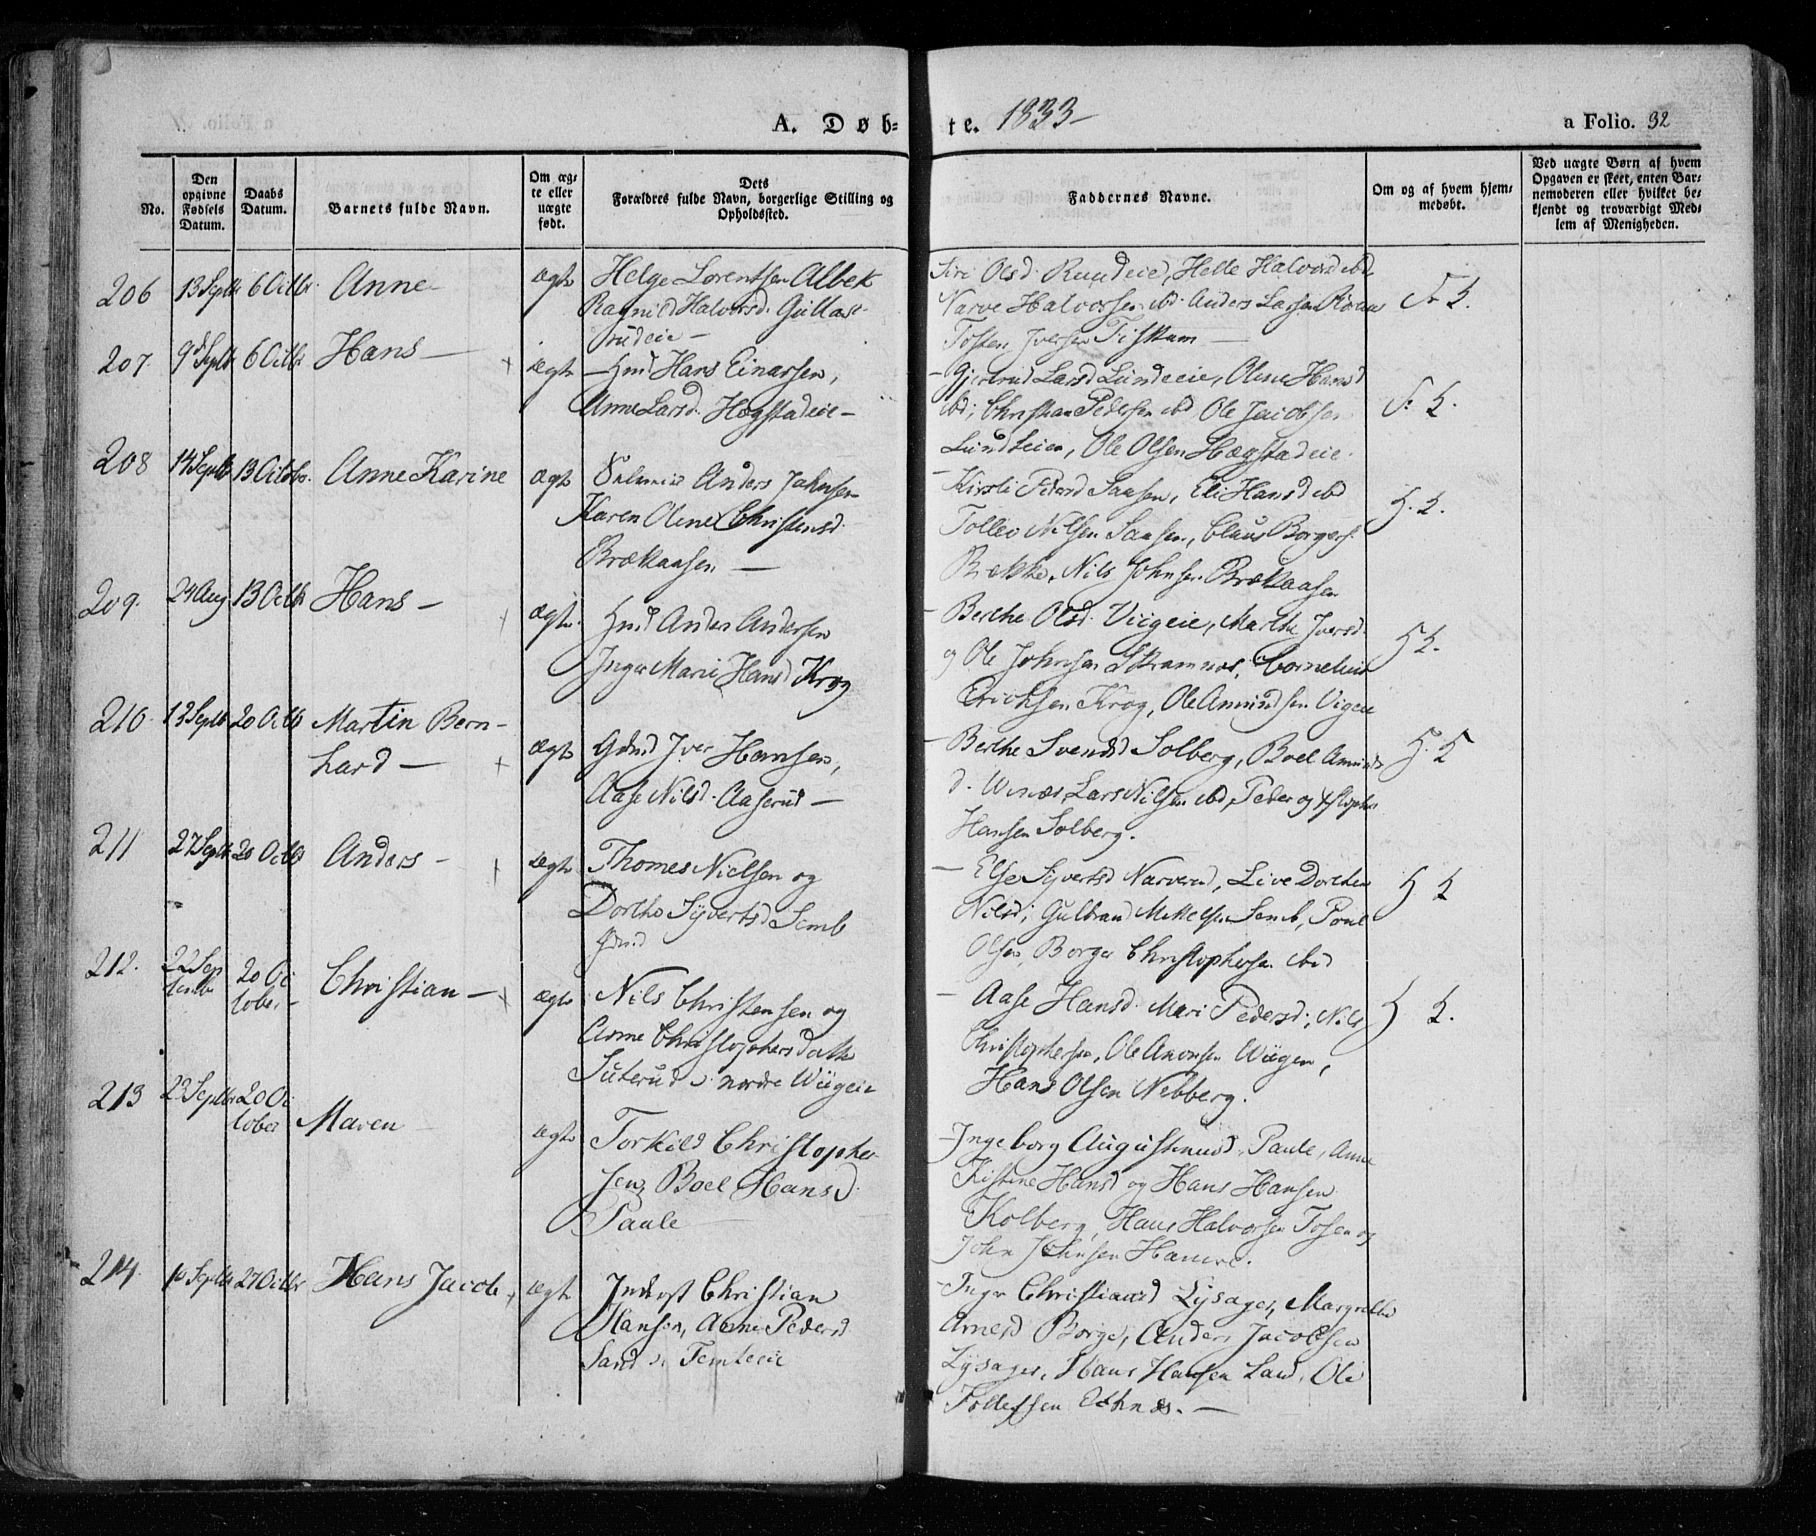 A. Døb-
te. 1833-
a Folio. 32
No.
Den opgivne Fødsels Datum.
Daabs Datum.
Barnets fulde Navn.
Om ægte eller uægte født.
Dets Forældres fulde Navn, borgerlige Stilling og Opholdssted.
Faddernes Navne.
Om og af hvem hjemmedøbt.
Ved uægte Børn af hvem Opgaven er skeet, enten Barnemoderen eller hvilket bekjendt og troværdigt Medlem af Menigheden.
206 13 Septb 6 Octbr. Anne - ægte
Helge Lorentsen Albek
Ragnild Halvorsd. Gullas-
rudeie -
Siri Olsd. Ruudeie, Helle Halvorsd ibd,
Narve Halvorsen ibd. Anders Larsen
Tosten Iversen Fiskum -
207. 9d Septb 6 Octbr Hans - ægte
Hmd Hans Einarsen,
Anne Larsd. Hægstadeie -
- Gjertrud Larsd Lundeeie, Olene Hansd
ibd; Christian Pedersen ibd Ole Jacobsen
Lundseien, Ole Olsen Hægstadeie.
208 14 Septb 13 Octobr. Anne Karine ægte
Anders Johnsen
Karen Olene Christensd.
Brækaasen -
- Kirsti Pedersd Saasen, Eli Hansd ibd
Tollev Nilsen Saasen, Claus Borgers.
Brække, Nils Johnsen Brækaasen
209. 24 Aug 13 Octb Hans - ægte.
Hmd Anders Andersen
Inger Marie Hansd Krog
- Berthe Olsd. Viigeie, Marthe Iversd.
og Ole Johnsen Skramnes, Cornelius
Ericksen Krog, Ole Amundsen Vigeie
210. 13 Septb 20 Octb Martin Bern-
hard - ægte
Gdmd Iver Hansen,
Aase Nilsd. Aaserud -
- Berthe Svendsd Solberg, Boel Amunds
d. Lars Nilsen ibd, Peder og
Hansen Solberg.
211 27 Septb 20 Octb Anders - ægte
Thomes Nielsen og
Dorthe Syvertsd Semb
Gdmd
- Else Syvertsd Narverud, Live Dorthea
Nilsd; Gulbrand Mikkelsen Semb, Poul
Olsen, Borger Christophersen ibid
212. 22 Sep
tembr 20 Oc
tober - Christian - ægte
Nils Christensen og
Anne Christophersdatter
Suterud nordre Wiigeie
- Aase Hansd. Mari Pedersd; Nils
Christophersen, Ole Wiigen,
Hans Olsen Nebberg.
213 23 Septbr 20 Oc
tober Maren ægte
Torkild Christopher-
sen, Boel Hansd.
Paule -
- Ingeborg Augustinusd. Paule, Anne
Kistine Hansd og Hans Hansen
Kolberg, Hans Halvorsen Tosen og
John Johnsen Hamre.
214. 10 Septb 27 Octbr Hans Jacob ægte
Inderst Christian
Hansen, Anne Pedersd
Sand Temteeie
- Inger Christiansd Lysager, Margrethe
Arnesd Borge, Anders Jacobsen
Lysager, Hans Hansen Sand, Ole
Tollefsen -